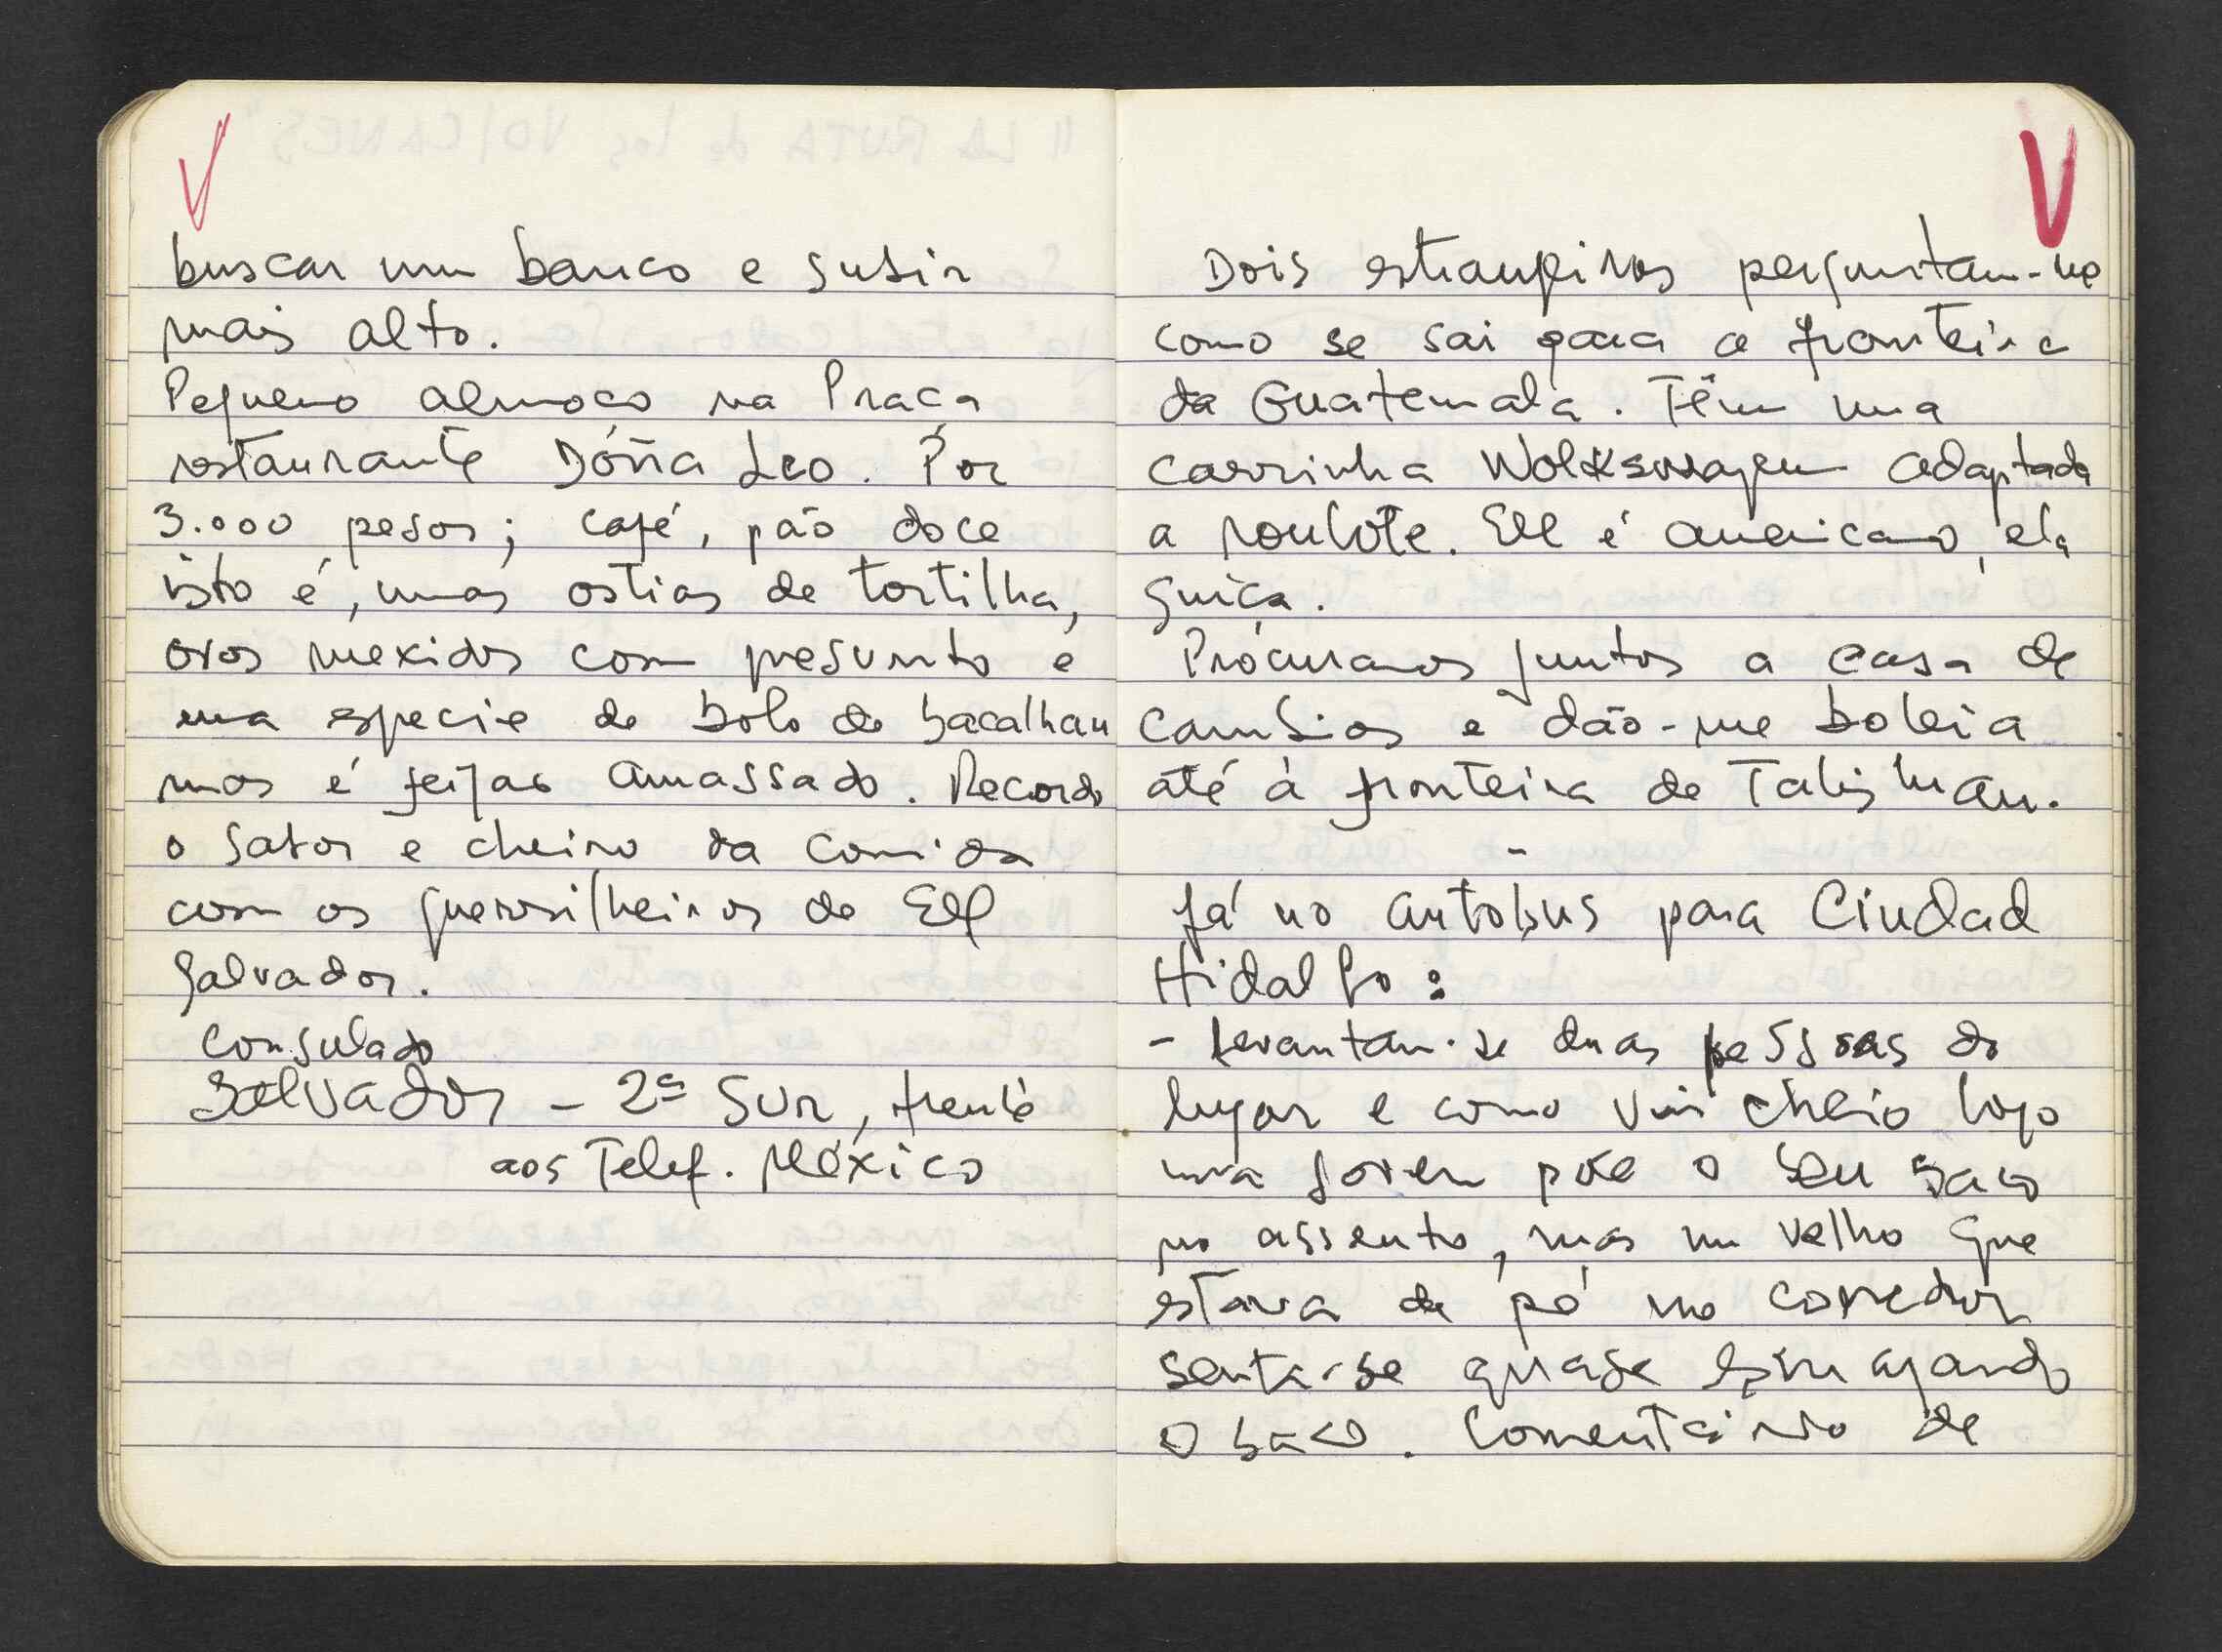 V
buscar um banco e subir
mais alto.
Pequeno almoço na Praça
restaurante Dóña Leo. Por
3.000 pesos; café, pão doce
isto é, umas ostias de tortilha,
ovos mexidos com presunto e
uma especie de bolo de bacalhau
mas é feijão amassado. Recordo
o sabor e cheiro da comida
com os guerrilheiros de El
Salvador.
Consulado
Salvador - 2ª Sur, frente
aos Telef. México
V
Dois estrangeiros perguntam-me
como se sai para a fronteira
da Guatemala. Têm uma
carrinha Wolkswagem adaptada
a roulote. Ele é americano, ela
Suiça.
Procuramos juntos a casa de
cambios e dão-me boleia
até à fronteira de Talisman.
-
Já no autobus para Ciudad
Hidalgo:
- Levantam-se duas pessoas do
lugar e como vai cheio logo
uma jovem põe o seu saco
no assento, mas um velho que
estava de pé no corredor
senta-se quase esmagando
o saco. Comentário de